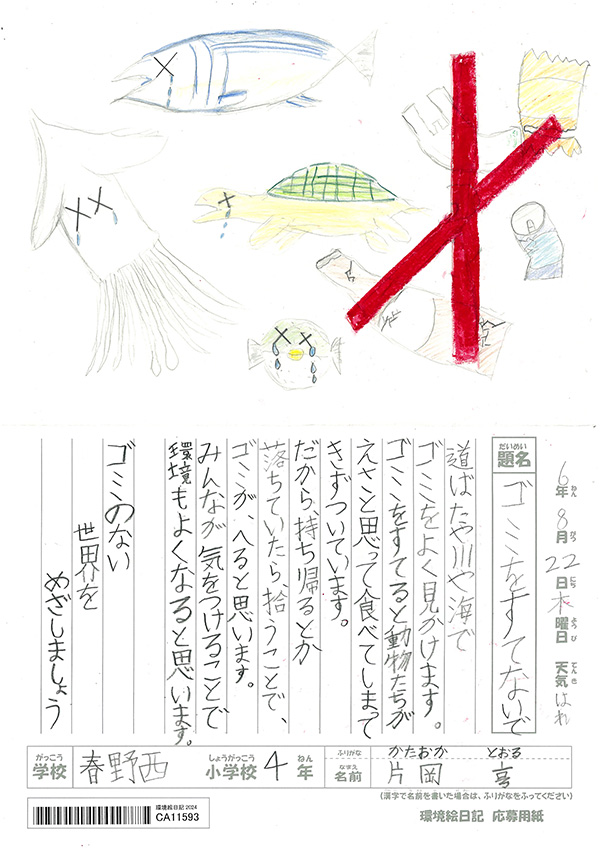 6年8月22日木曜日 天気はれ
ねん がつ にち ようび てんき
だいめい
題名 ゴミをすてないで
道ばたや川や海で
ゴミをよく見かけます。
ゴミをすてると動物たちが
えさと思って食べてしまって
きずついています。
だから、持ち帰るとか
落ちていたら、拾うことで、
ゴミが、へると思います。
みんなが気をつけることで
環境もよくなると思います。
ゴミのない
世界を
めざしましょう
がっこう しょうがっこう ねん ふりがな かたおか とおる
学校 春野西 小学校 4年 なまえ 名前 片岡 亨
(漢字で名前を書いた場合は、ふりがなをふってください)
環境絵日記 2024
CA11593
環境絵日記 応募用紙